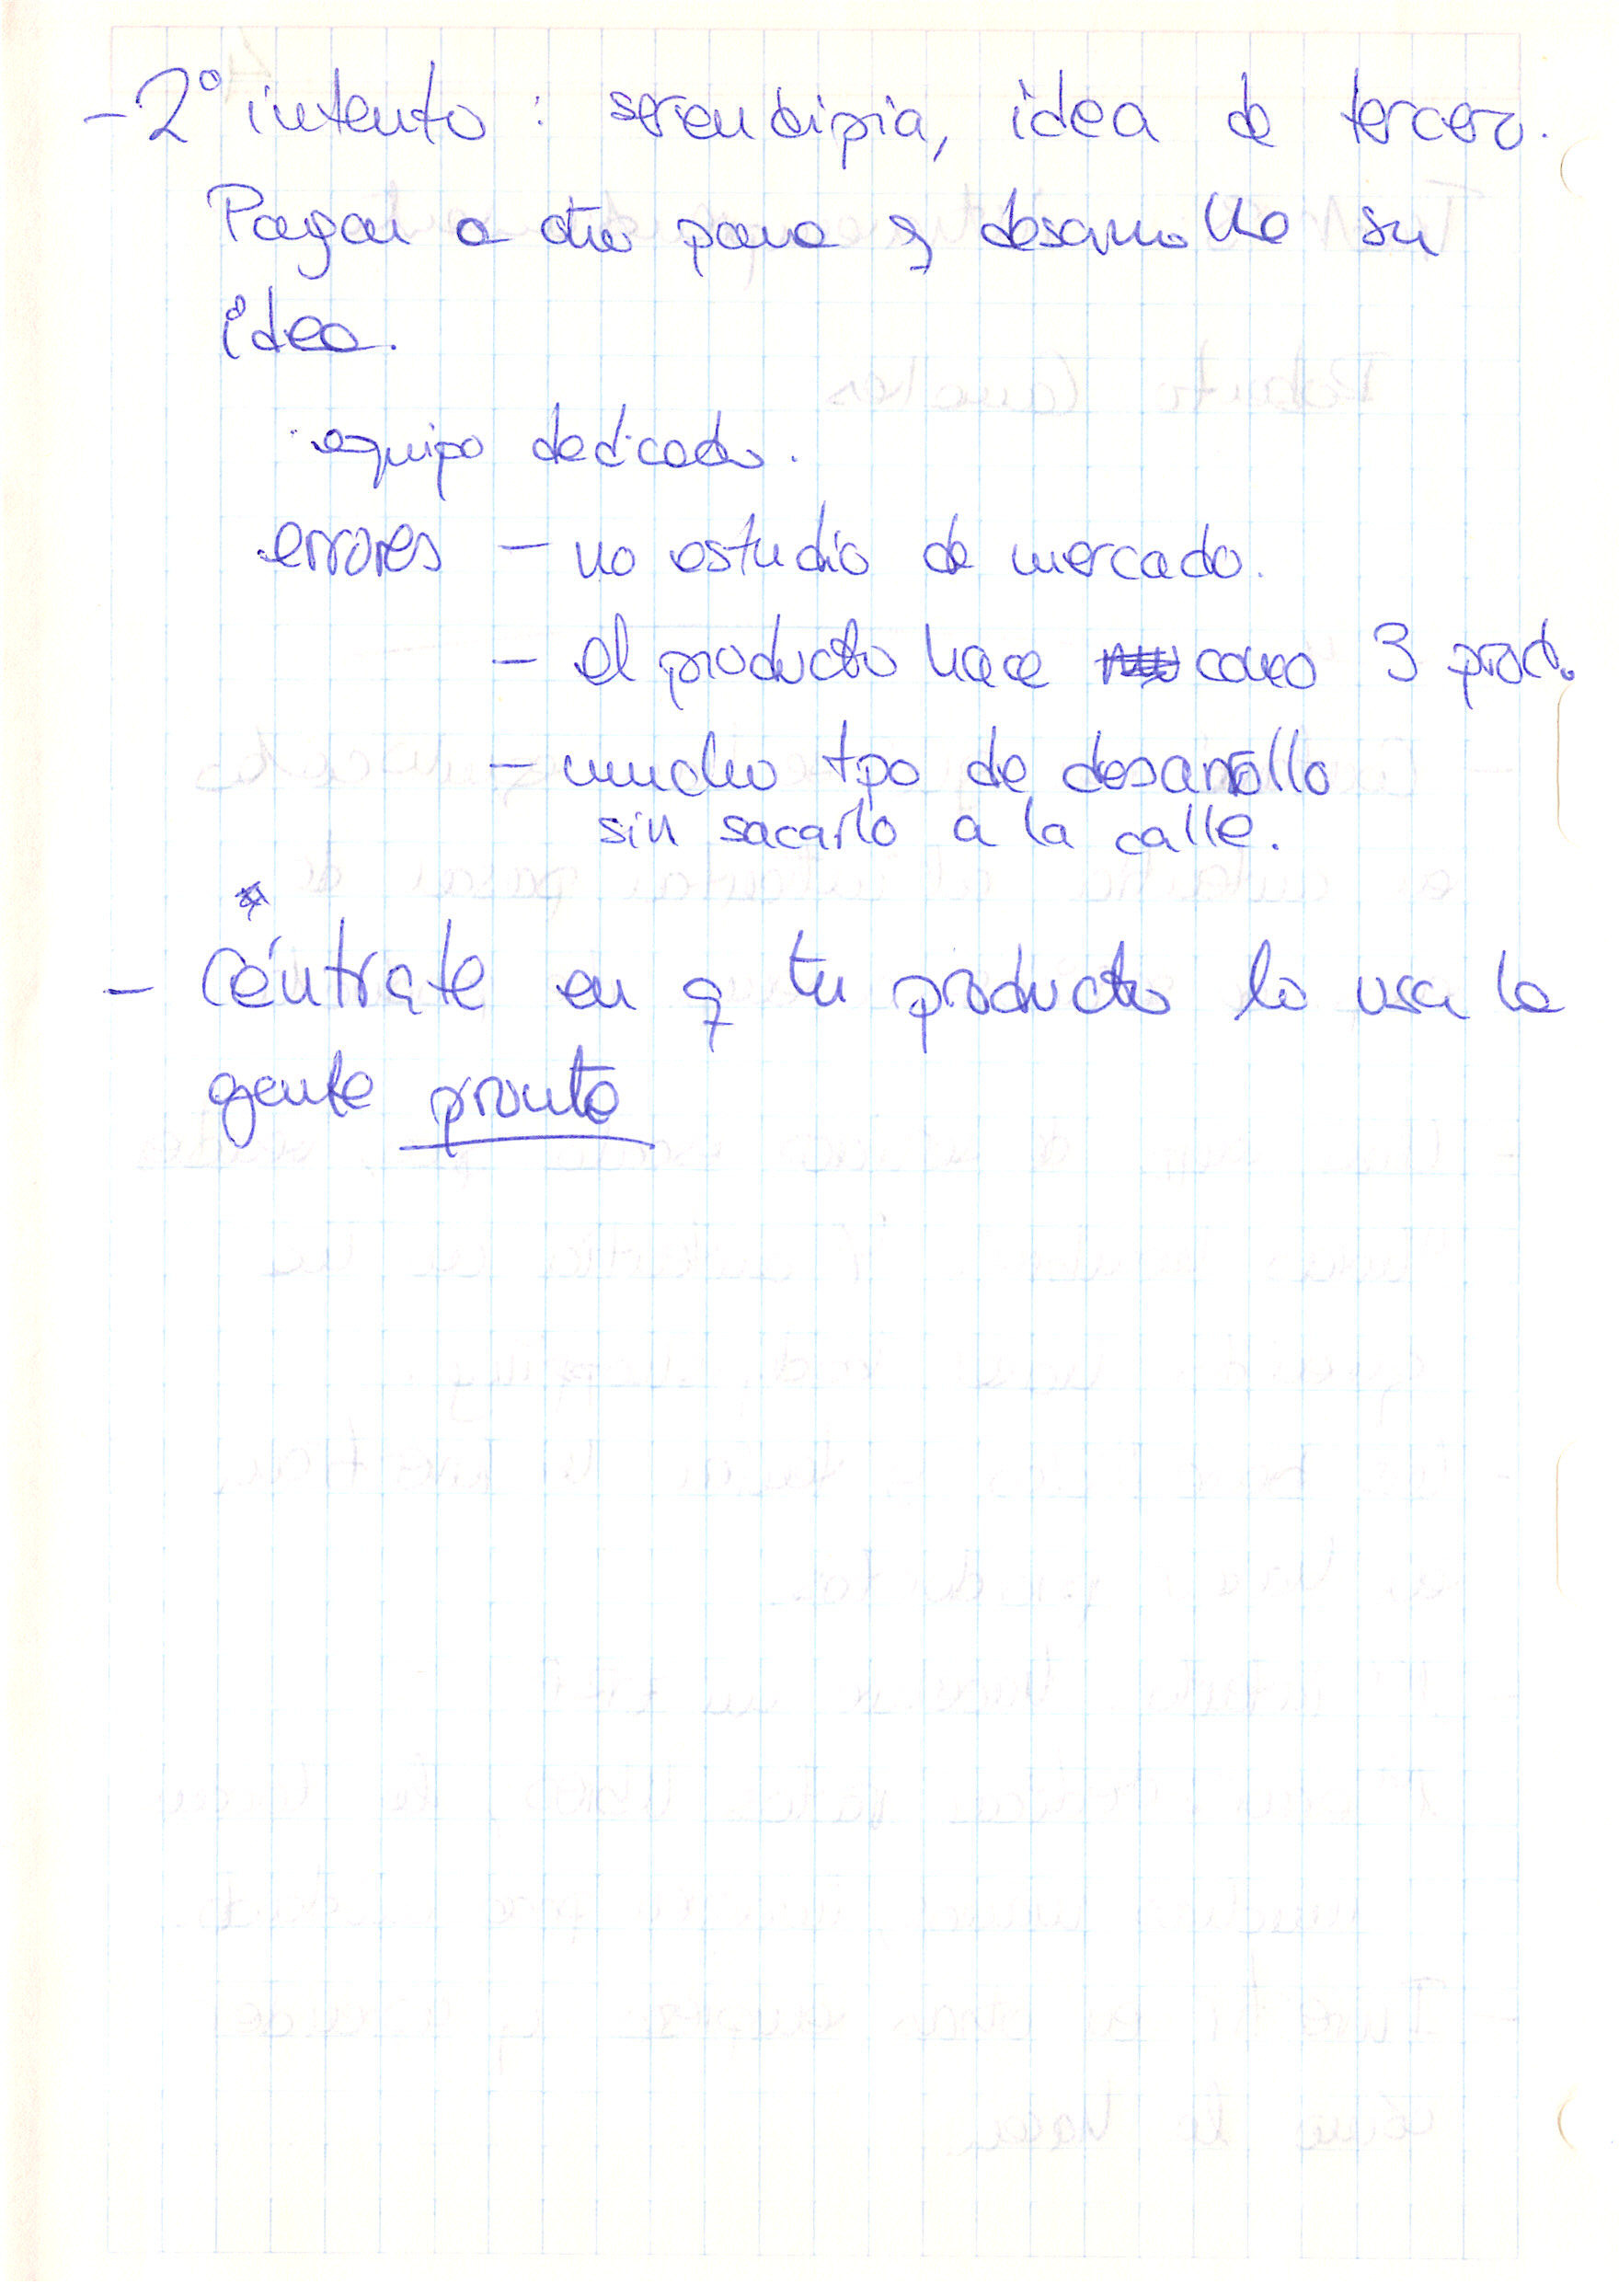 - 2º intento : serendipia, idea de tercero.
Pagar a otro para q desarrolle su
idea.
· equipo dedicado.
errores - no estudio de mercado.
- el producto hace como 3 prod.
- mucho tpo de desarrollo
sin sacarlo a la calle.
*
- Céntrate en q tu producto lo usa la
gente pronto